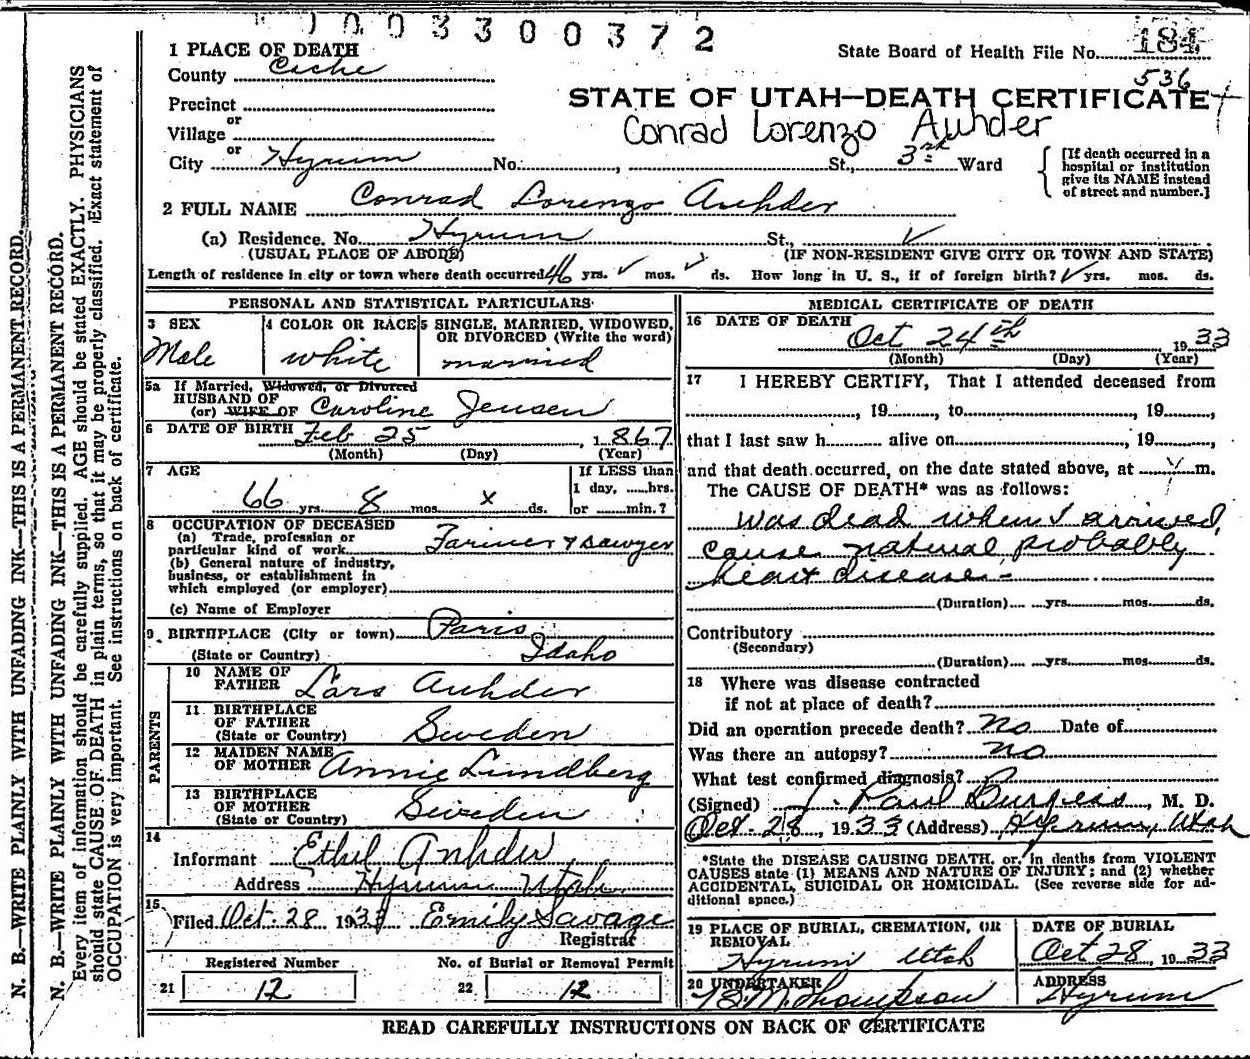 1003300372
State Board of Health File No. 184
536
1 PLACE OF DEATH
County Cache
Precinct
or
Village
or
City Hyrum No. , St., 3rd Ward
STATE OF UTAH—DEATH CERTIFICATE
Conrad Lorenzo Auhder
[If death occurred in a
hospital or institution
give its NAME instead
of street and number.]
2 FULL NAME Conrad Lorenzo Auhder
(a) Residence. No. Hyrum St.,
(USUAL PLACE OF ABODE) (IF NON-RESIDENT GIVE CITY OR TOWN AND STATE)
Length of residence in city or town where death occurred 46 yrs. mos. ds. How long in U. S., if of foreign birth? yrs. mos. ds.
PERSONAL AND STATISTICAL PARTICULARS
3 SEX
Male
4 COLOR OR RACE
white
5 SINGLE, MARRIED, WIDOWED,
OR DIVORCED (Write the word)
married
5a If Married, Widowed, or Divorced
HUSBAND OF
(or) WIFE OF Caroline Jensen
6 DATE OF BIRTH Feb 25, 1867
(Month) (Day) (Year)
7 AGE
66 yrs. 8 mos. x ds.
If LESS than
1 day, hrs.
or min.?
8 OCCUPATION OF DECEASED
(a) Trade, profession or
particular kind of work Farmer & sawyer
(b) General nature of industry,
business, or establishment in
which employed (or employer)
(c) Name of Employer
9 BIRTHPLACE (City or town) Paris
(State or Country) Idaho
PARENTS
10 NAME OF
FATHER Lars Auhder
11 BIRTHPLACE
OF FATHER
(State or Country) Sweden
12 MAIDEN NAME
OF MOTHER Annie Lundberg
13 BIRTHPLACE
OF MOTHER
(State or Country) Sweden
14
Informant Ethel Auhder
Address Hyrum Utah
15
Filed Oct. 28 1933 Emily Savage
Registrar
Registered Number
21 12
No. of Burial or Removal Permit
22 12
MEDICAL CERTIFICATE OF DEATH
16 DATE OF DEATH
Oct 24th 1933
(Month) (Day) (Year)
17 I HEREBY CERTIFY, That I attended deceased from
, 19 , to , 19 ,
that I last saw h alive on , 19 ,
and that death occurred, on the date stated above, at m.
The CAUSE OF DEATH* was as follows:
Was dead when I arrived,
cause natural probably
heart disease-
(Duration) yrs. mos. ds.
Contributory
(Secondary)
(Duration) yrs. mos. ds.
18 Where was disease contracted
if not at place of death?
Did an operation precede death? no Date of
Was there an autopsy? no
What test confirmed diagnosis?
(Signed) J. Paul Burgess, M. D.
Oct. 28, 1933 (Address) Hyrum, Utah
*State the DISEASE CAUSING DEATH, or, in deaths from VIOLENT
CAUSES state (1) MEANS AND NATURE OF INJURY; and (2) whether
ACCIDENTAL, SUICIDAL OR HOMICIDAL. (See reverse side for ad-
ditional space.)
19 PLACE OF BURIAL, CREMATION, OR
REMOVAL
Hyrum Utah
DATE OF BURIAL
Oct 28, 1933
20 UNDERTAKER
Thompson
ADDRESS
Hyrum
READ CAREFULLY INSTRUCTIONS ON BACK OF CERTIFICATE
N. B.—WRITE PLAINLY WITH UNFADING INK—THIS IS A PERMANENT RECORD
N. B.—WRITE PLAINLY WITH UNFADING INK—THIS IS A PERMANENT RECORD.
Every item of information should be carefully supplied. AGE should be stated EXACTLY. PHYSICIANS
should state CAUSE OF DEATH in plain terms, so that it may be properly classified. Exact statement of
OCCUPATION is very important. See instructions on back of certificate.